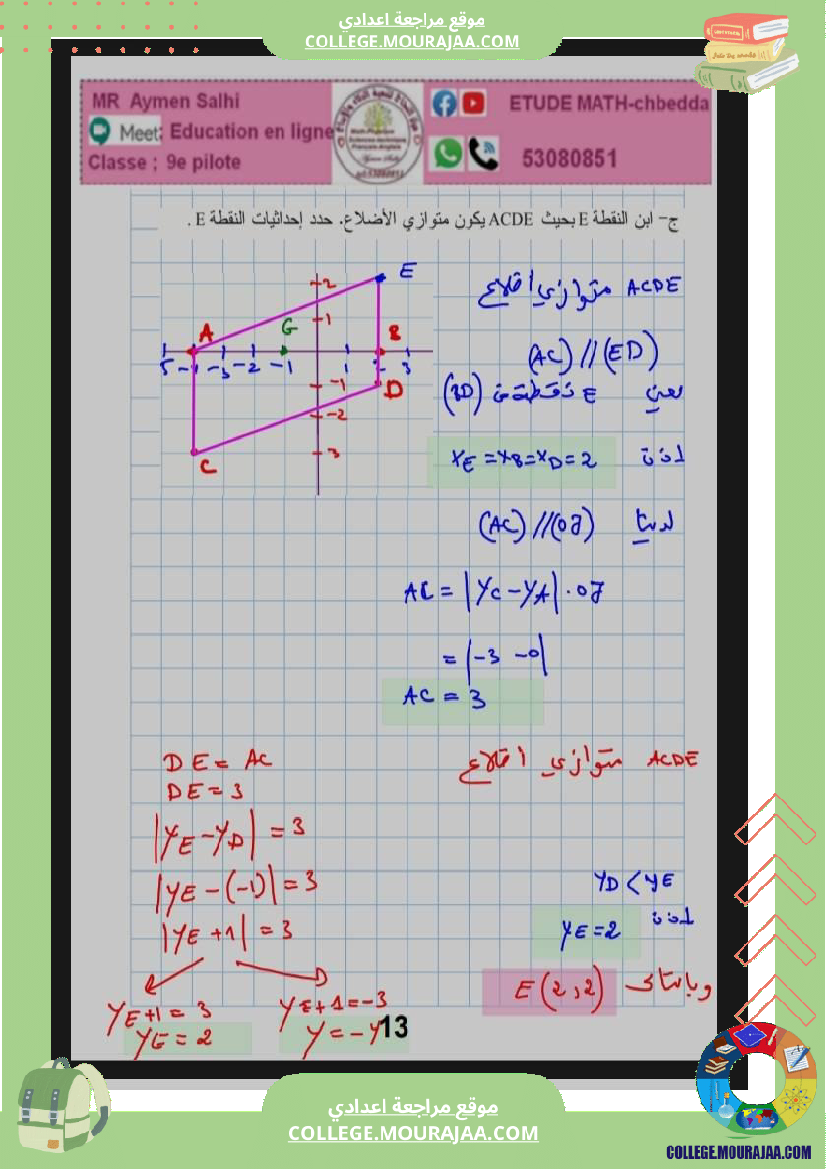 موقع مراجعة اعدادي
COLLEGE.MOURAJAA.COM
MR Aymen Salhi
Meet: Education en ligne
Classe ; 9e pilote
ETUDE MATH-chbedda
53080851
ج- ابن النقطة E بحيث ACDE يكون متوازي الأضلاع. حدد إحداثيات النقطة E .
E
2
1
A
G
B
5 -4 -3 -2 -1 1 2 3
-1
D
-2
3
C
ACDE متوازي اضلاع
(AC) // (ED)
يعني E نقطة من (BD)
xE = xB = xD = 2 اذن
لدينا (AC) // (OJ)
AC = |yC - yA| . OJ
= |-3 -0|
AC = 3
ACDE متوازي اضلاع
DE = AC
DE = 3
|yE - yD| = 3
|yE - (-1)| = 3
|yE + 1| = 3
yE+1 = 3
yE = 2
yE+1 = -3
y = -4
yD < yE
اذن yE = 2
وبالتالي E(2,2)
13
موقع مراجعة اعدادي
COLLEGE.MOURAJAA.COM
COLLEGE.MOURAJAA.COM